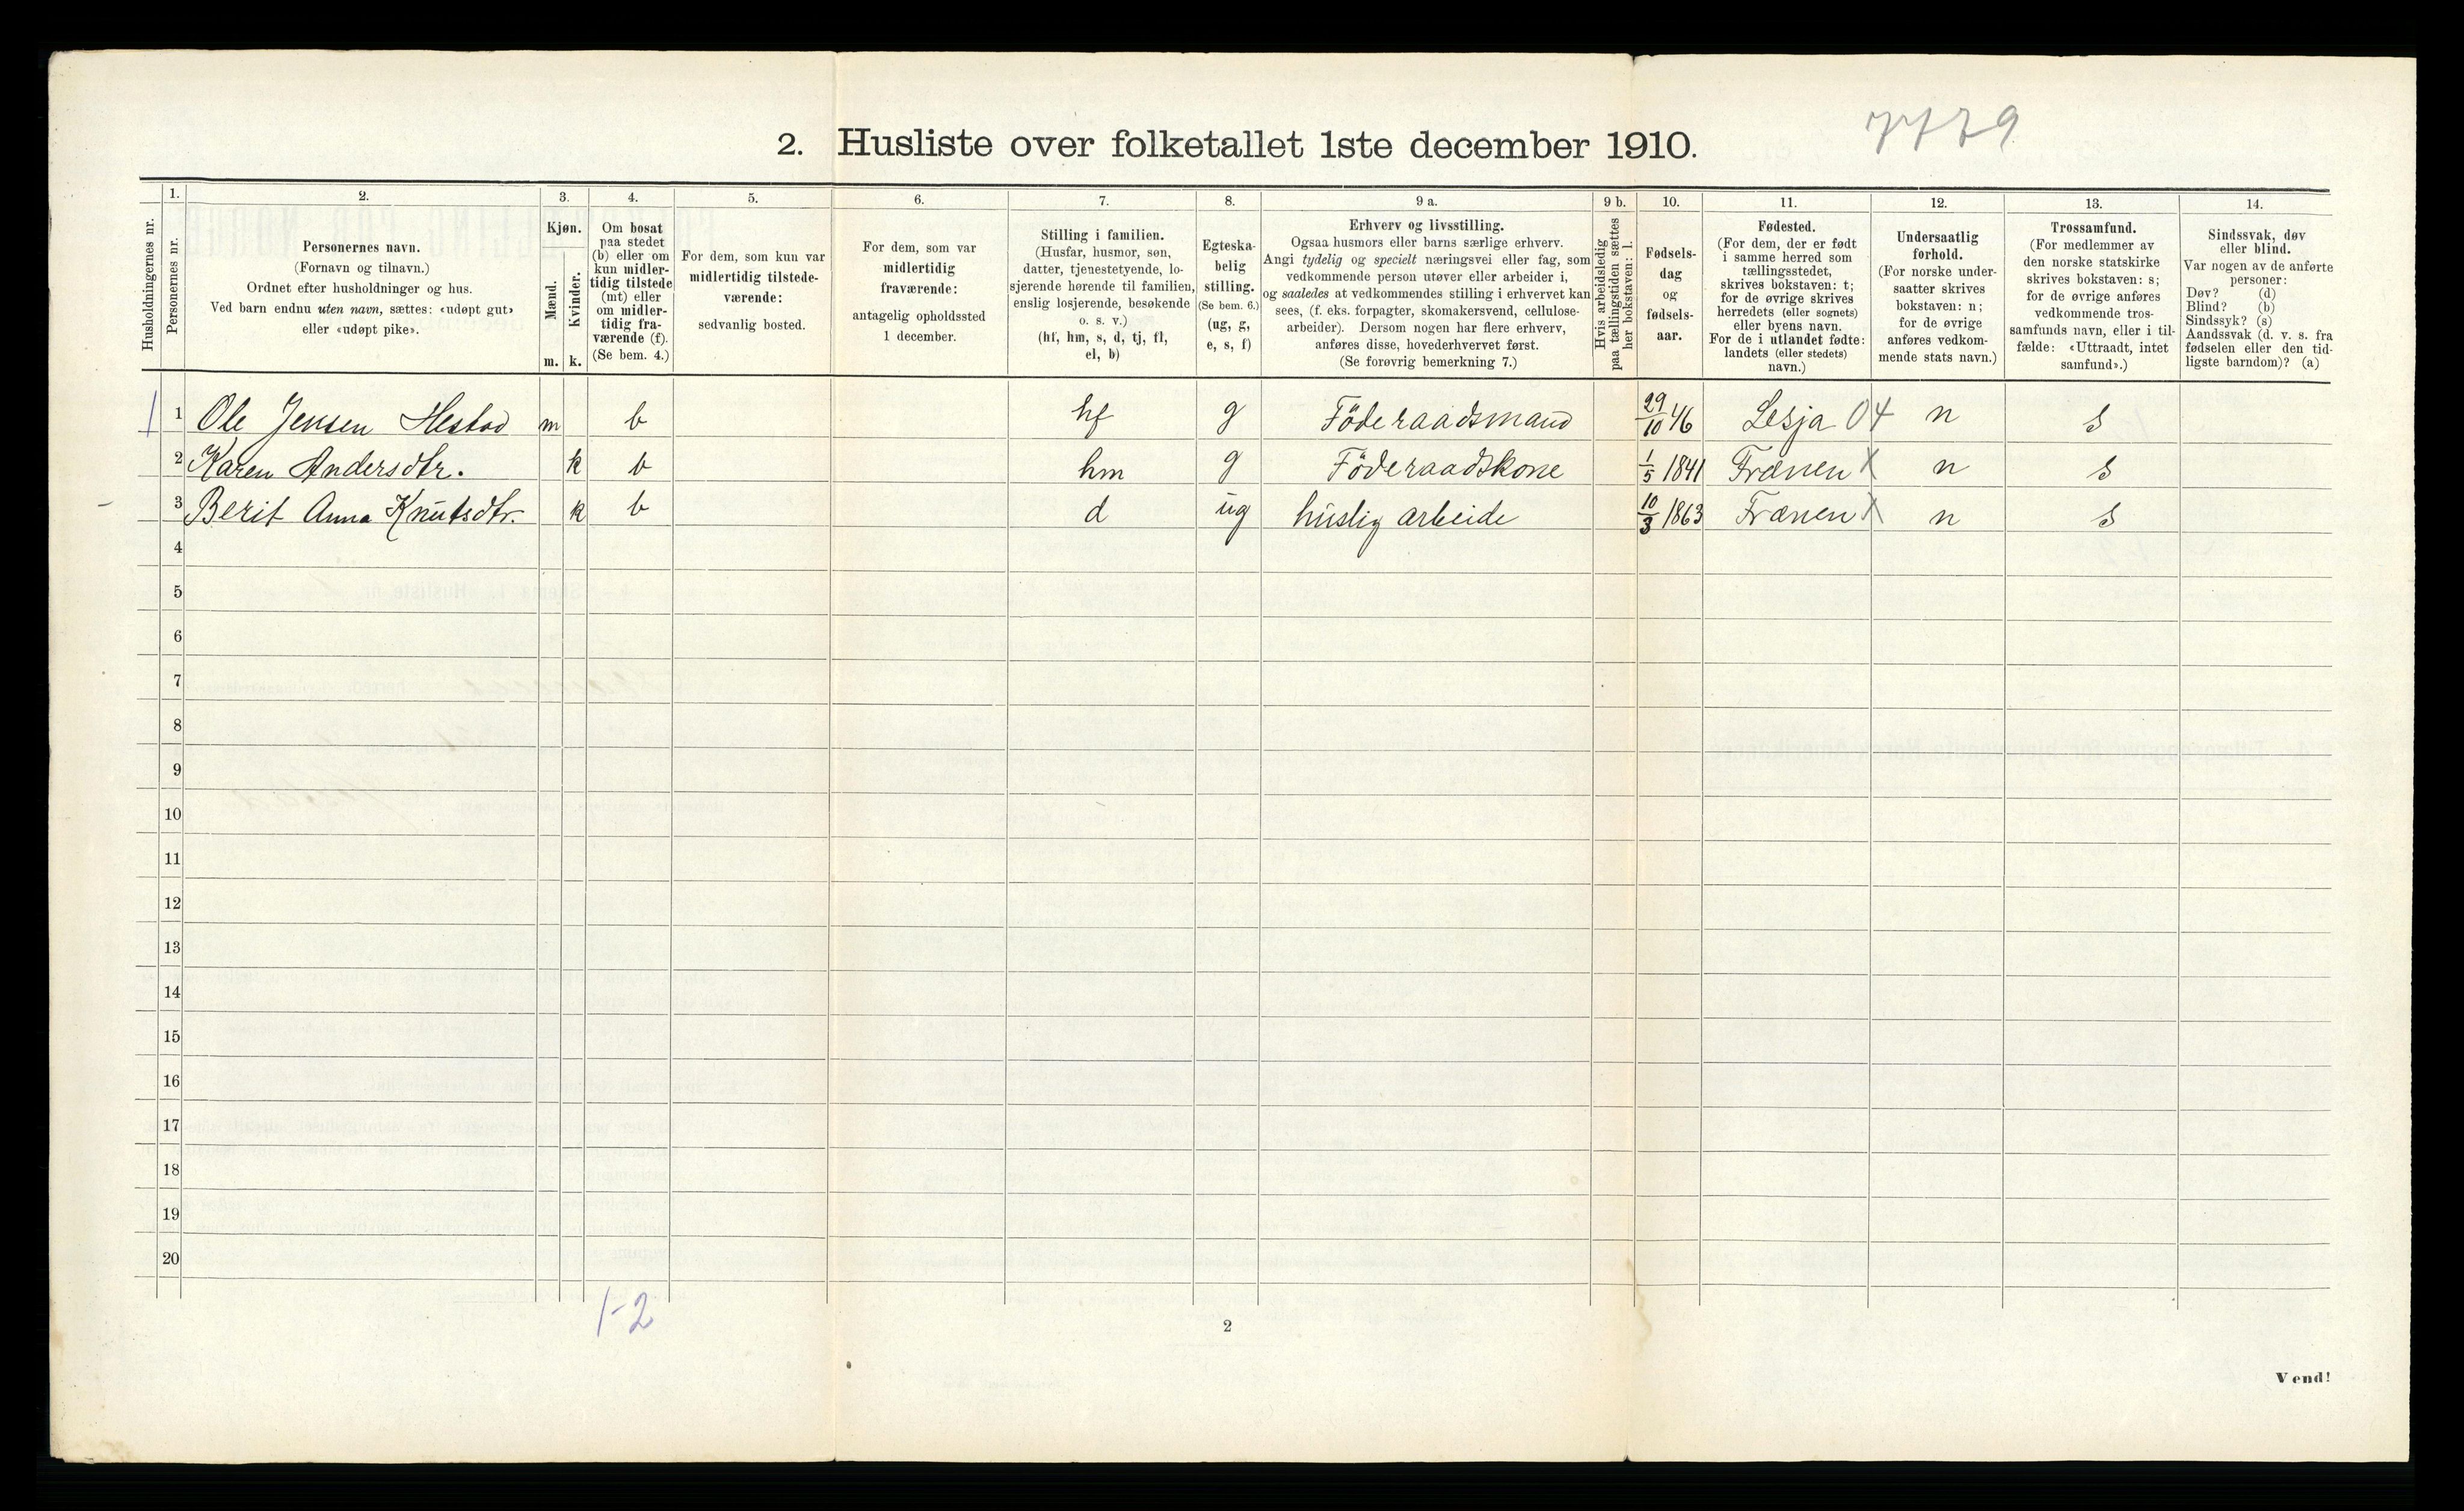 7779
2. Husliste over folketallet 1ste december 1910.
Husholdningernes nr.
1.
Personernes nr.
2.
Personernes navn.
(Fornavn og tilnavn.)
Ordnet efter husholdninger og hus.
Ved barn endnu uten navn, sættes: «udøpt gut»
eller «udøpt pike».
3.
Kjøn.
Mænd.
Kvinder.
m. k.
4.
Om bosat
paa stedet
(b) eller om
kun midler-
tidig tilstede
(mt) eller
om midler-
tidig fra-
værende (f).
(Se bem. 4.)
5.
For dem, som kun var
midlertidig tilstede-
værende:
sedvanlig bosted.
6.
For dem, som var
midlertidig
fraværende:
antagelig opholdssted
1 december.
7.
Stilling i familien.
(Husfar, husmor, søn,
datter, tjenestetyende, lo-
sjerende hørende til familien,
enslig losjerende, besøkende
o. s. v.)
(hf, hm, s, d, tj, fl,
el, b)
8.
Egteska-
belig
stilling.
(Se bem. 6.)
(ug, g,
e, s, f)
9 a.
Erhverv og livsstilling.
Ogsaa husmors eller barns særlige erhverv.
Angi tydelig og specielt næringsvei eller fag, som
vedkommende person utøver eller arbeider i,
og saaledes at vedkommendes stilling i erhvervet kan
sees, (f. eks. forpagter, skomakersvend, cellulose-
arbeider). Dersom nogen har flere erhverv,
anføres disse, hovederhvervet først.
(Se forøvrig bemerkning 7.)
9 b.
Hvis arbeidsledig
paa tællingstiden sættes
her bokstaven: l.
10.
Fødsels-
dag
og
fødsels-
aar.
11.
Fødested.
(For dem, der er født
i samme herred som
tællingsstedet,
skrives bokstaven: t;
for de øvrige skrives
herredets (eller sognets)
eller byens navn.
For de i utlandet fødte:
landets (eller stedets)
navn.)
12.
Undersaatlig
forhold.
(For norske under-
saatter skrives
bokstaven: n;
for de øvrige
anføres vedkom-
mende stats navn.)
13.
Trossamfund.
(For medlemmer av
den norske statskirke
skrives bokstaven: s;
for de øvrige anføres
vedkommende tros-
samfunds navn, eller i til-
fælde: «Uttraadt, intet
samfund».)
14.
Sindssvak, døv
eller blind.
Var nogen av de anførte
personer:
Døv? (d)
Blind? (b)
Sindssyk? (s)
Aandssvak (d. v. s. fra
fødselen eller den tid-
ligste barndom)? (a)
1 1 Ole Jensen Hestad m b hf g Föderaadsmand 29/10 46 Lesja 04 n s
2 Karen Andersdtr. k b hm g Föderaadskone 1/5 1841 Frænen X n s
3 Berit Anna Knutsdtr. k b d ug huslig arbeide 10/3 1863 Frænen X n s
4
5
6
7
8
9
10
11
12
13
14
15
16
17
18
19
20
1-2
2
Vend!